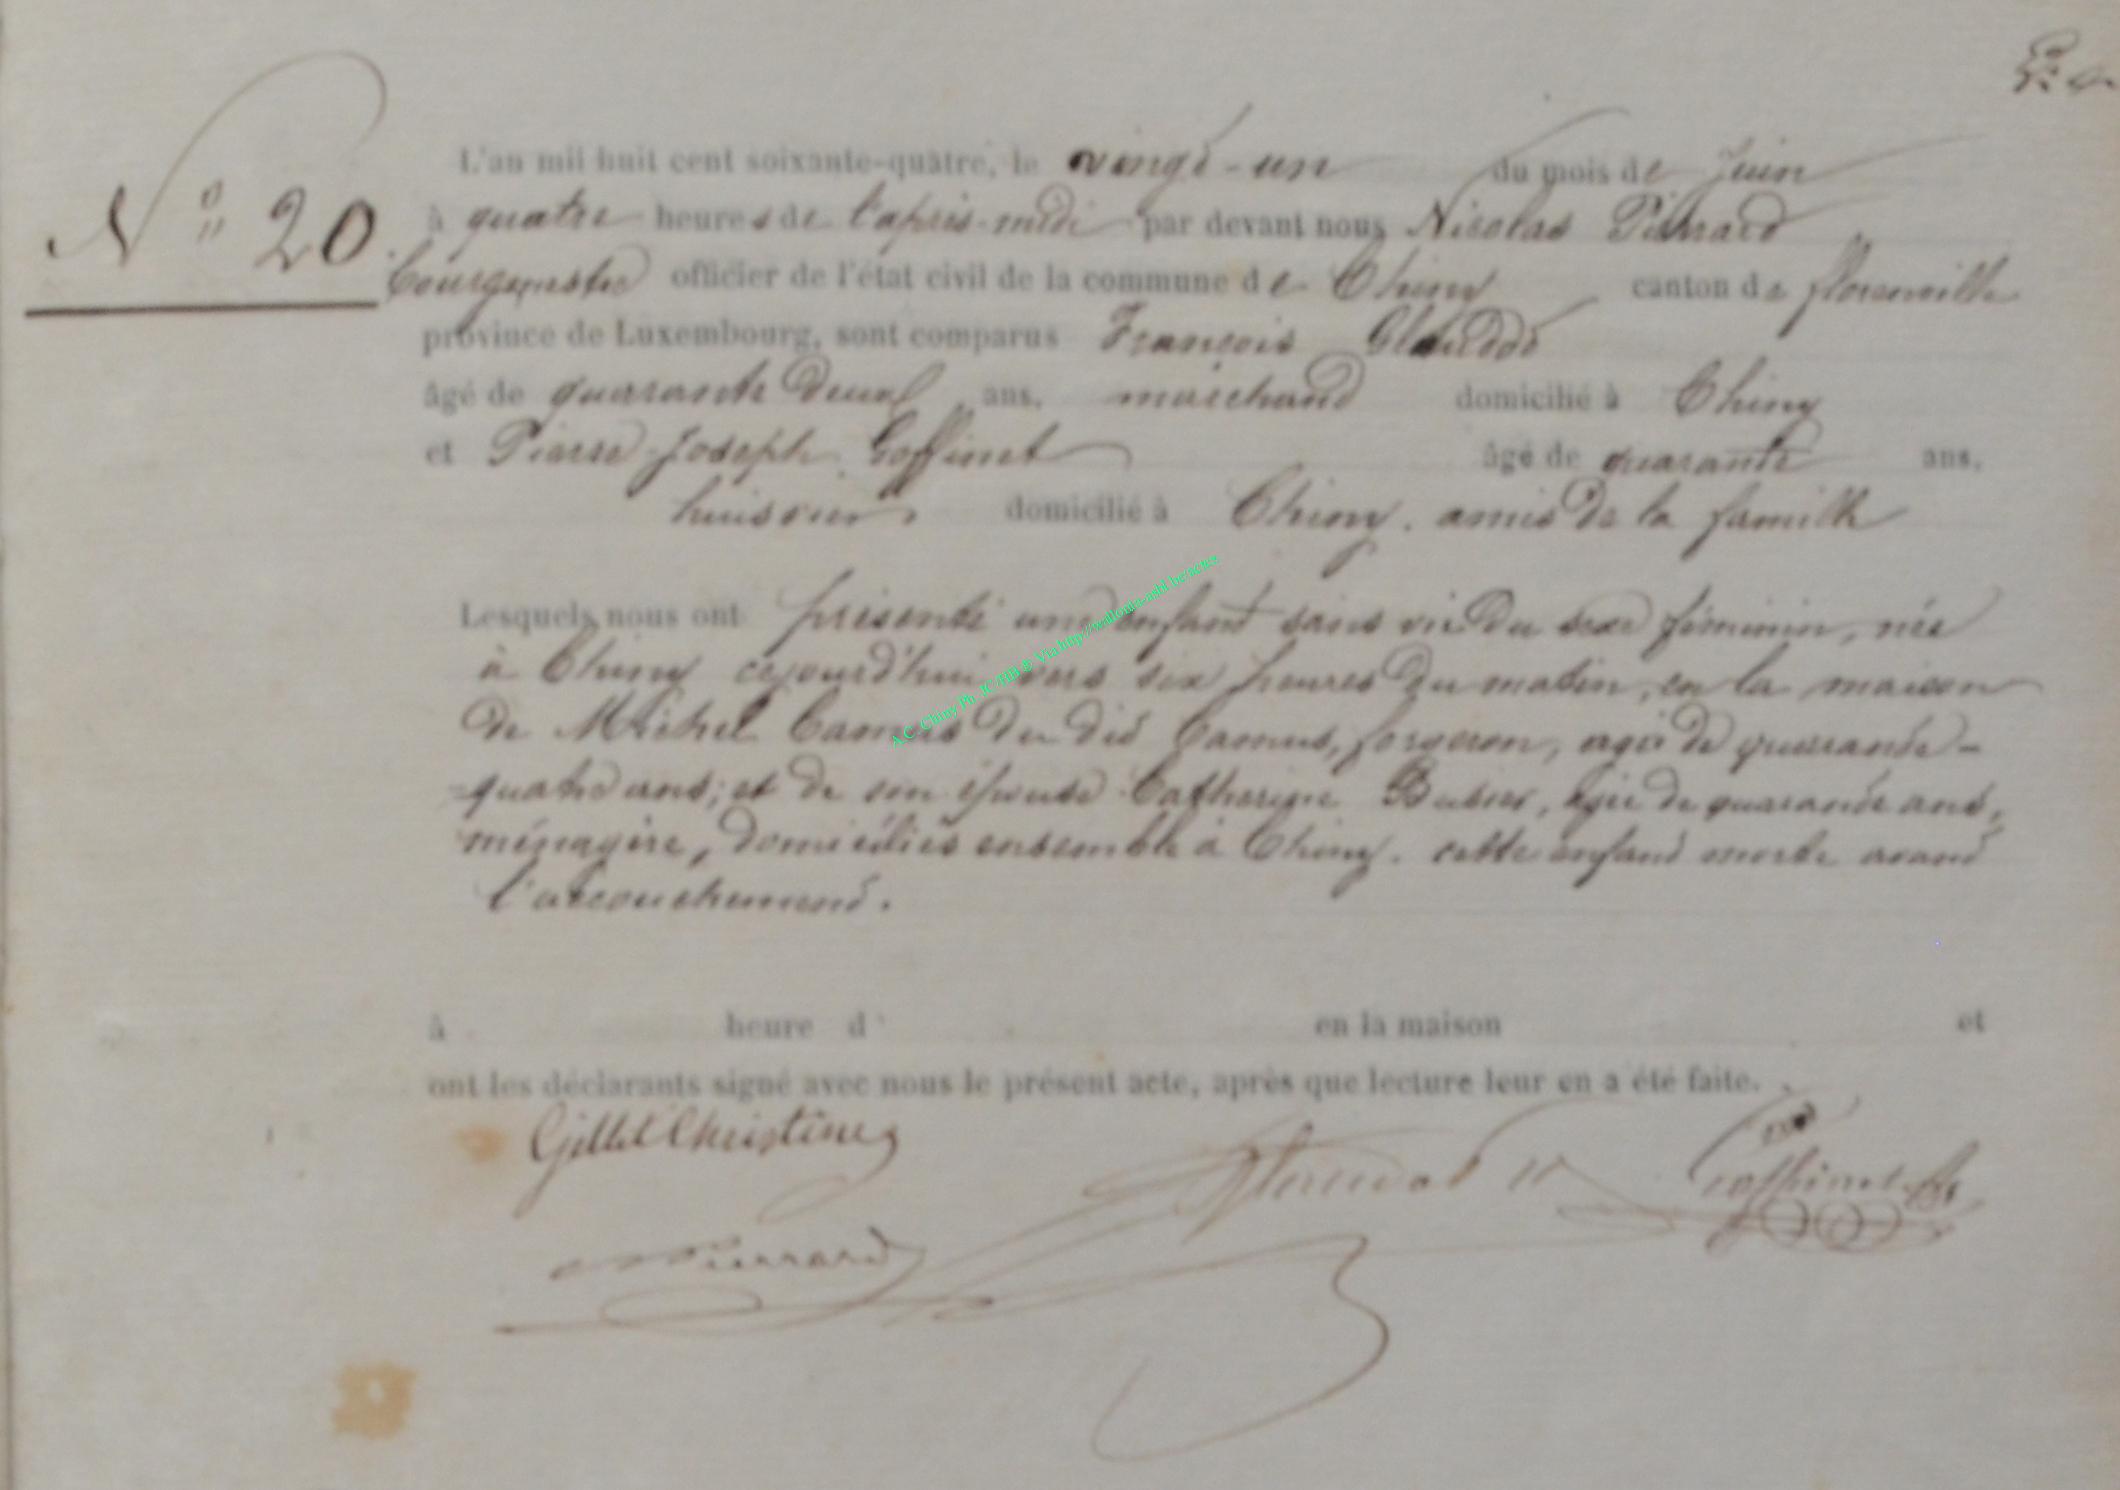 N° 20
L'an mil huit cent soixante-quatre, le vingt-un du mois de Juin
à quatre heures de l'après-midi par devant nous Nicolas Pierrard
bourgmestre officier de l'état civil de la commune de Chiny canton de florenville
province de Luxembourg, sont comparus François
âgé de quarante deux ans, marchand domicilié à Chiny
et Pierre-Joseph Goffinet âgé de quarante ans,
huissier domicilié à Chiny. amis de la famille
Lesquels nous ont présenté une enfant sans vie du sexe féminin, née
à Chiny cejourd'hui vers six heures du matin, en la maison
de Michel Camus du dit Camus, forgeron, agé de quarante-
=quatre ans; et de son épouse Catherine agée de quarante ans,
ménagère, domiciliés ensemble à Chiny. cette enfant morte avant
l'accouchement.
à heure d en la maison et
ont les déclarants signé avec nous le présent acte, après que lecture leur en a été faite.
Gillet Christine
Goffinet
Pierrard
A.C. Chiny Ph. JC HB ® Via http://wallonia-asbl.be/acmz